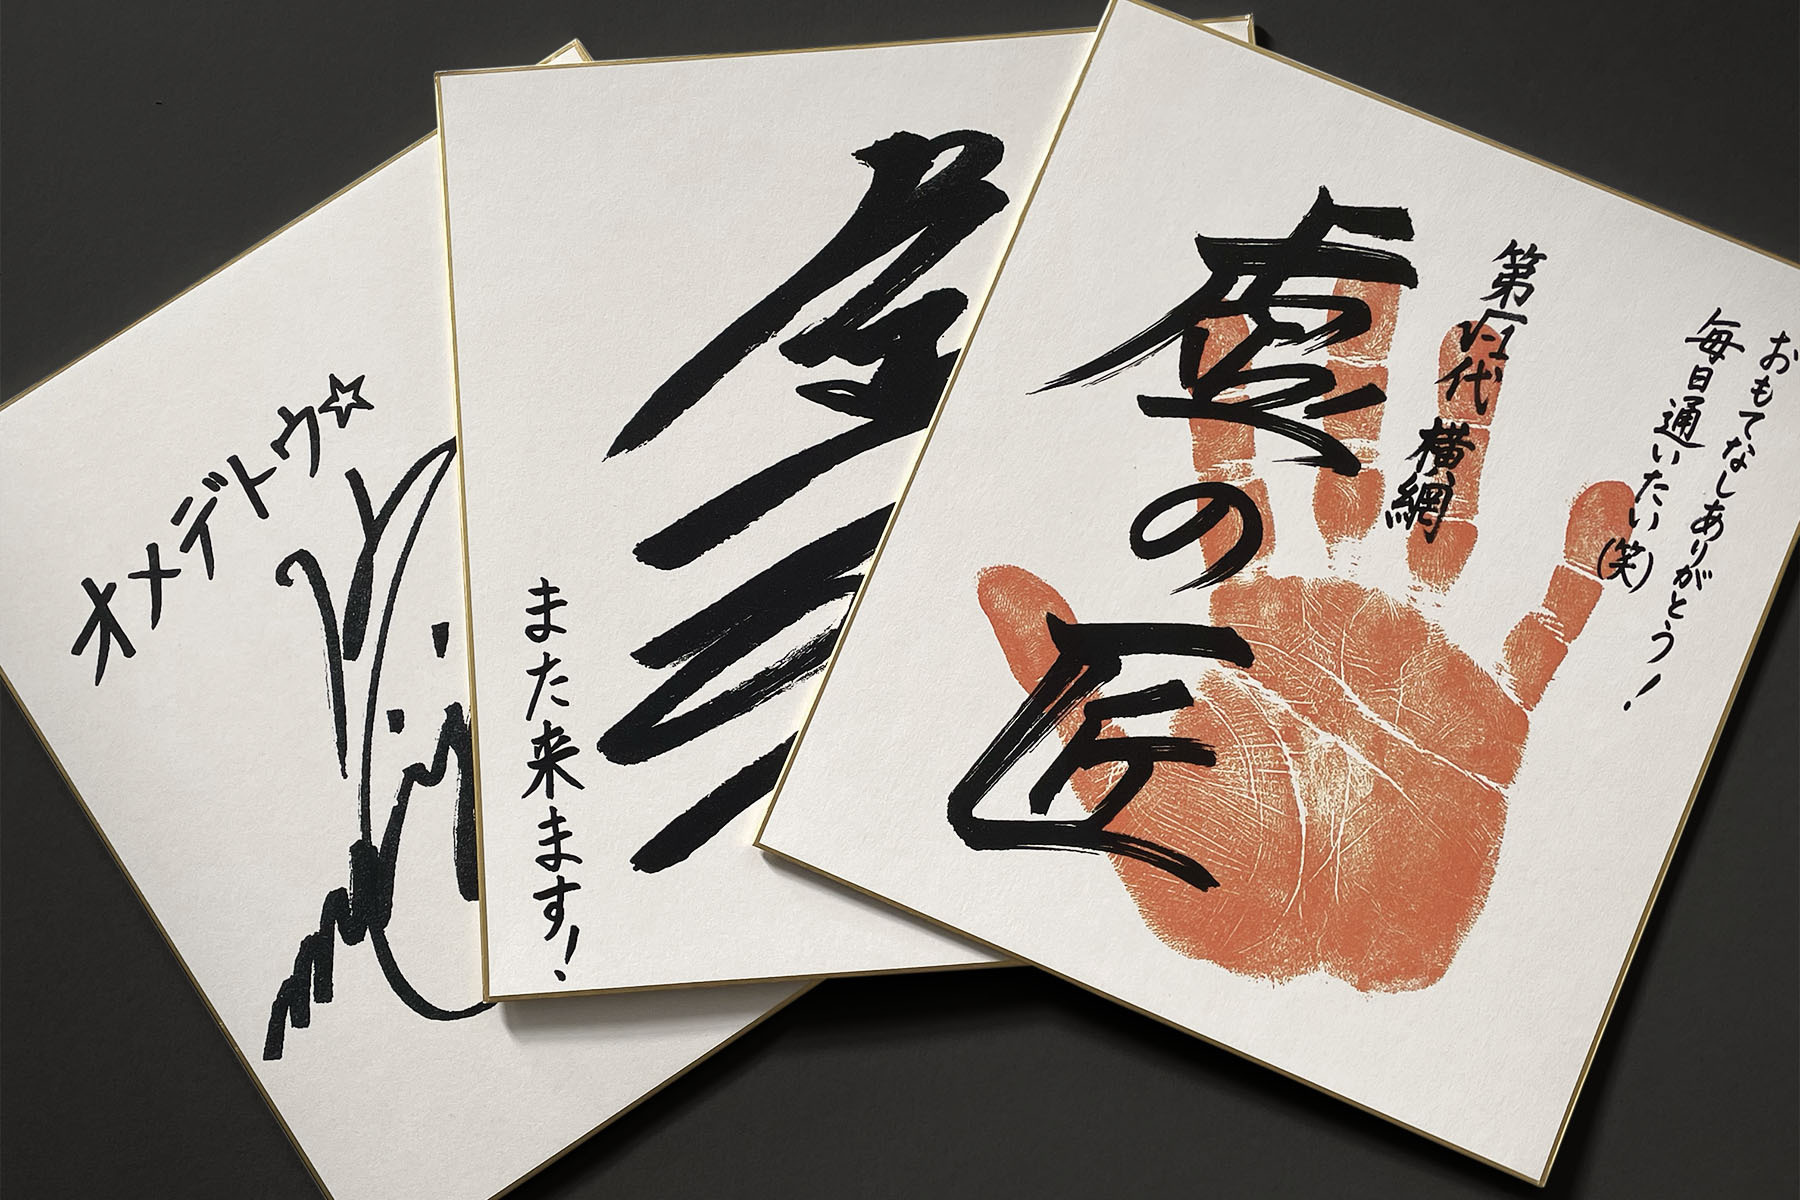 おもてなしありがとう!
毎日通いたい(笑)
第√-1代 横綱
虚の匠
また来ます!
オメデトウ☆